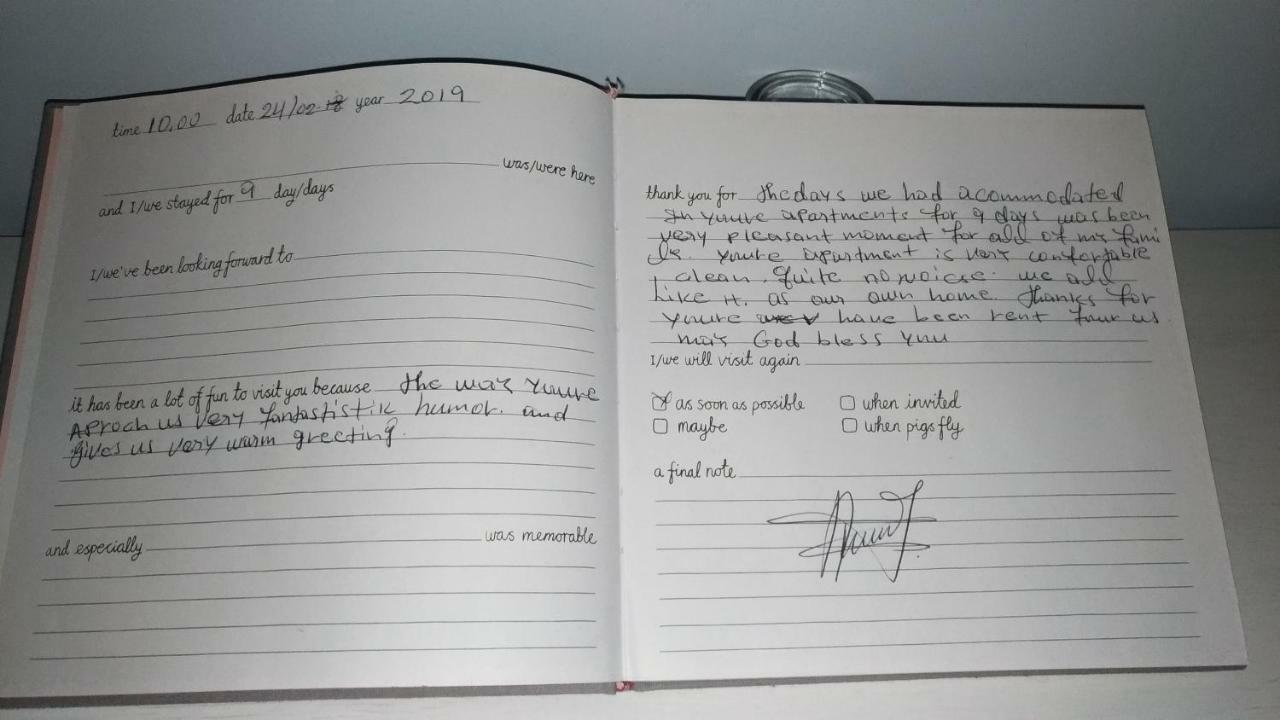 time 10.00 date 24/02 year 2019
was/were here
and I/we stayed for 9 day/days
I/we've been looking forward to
it has been a lot of fun to visit you because the way youre
Aproch us very fantastistik humor. and
gives us very warm greeting.
and especially was memorable
thank you for the days we had acommodated
In youre apartments for 9 days was been
very pleasant moment for all of my fami
ly. youre apartment is very comfortable
, clean. Quite no noicse. we all
Like it. as our own home. thanks for
youre have been rent four us
may God bless you
I/we will visit again
as soon as possible when invited
maybe when pigs fly
a final note